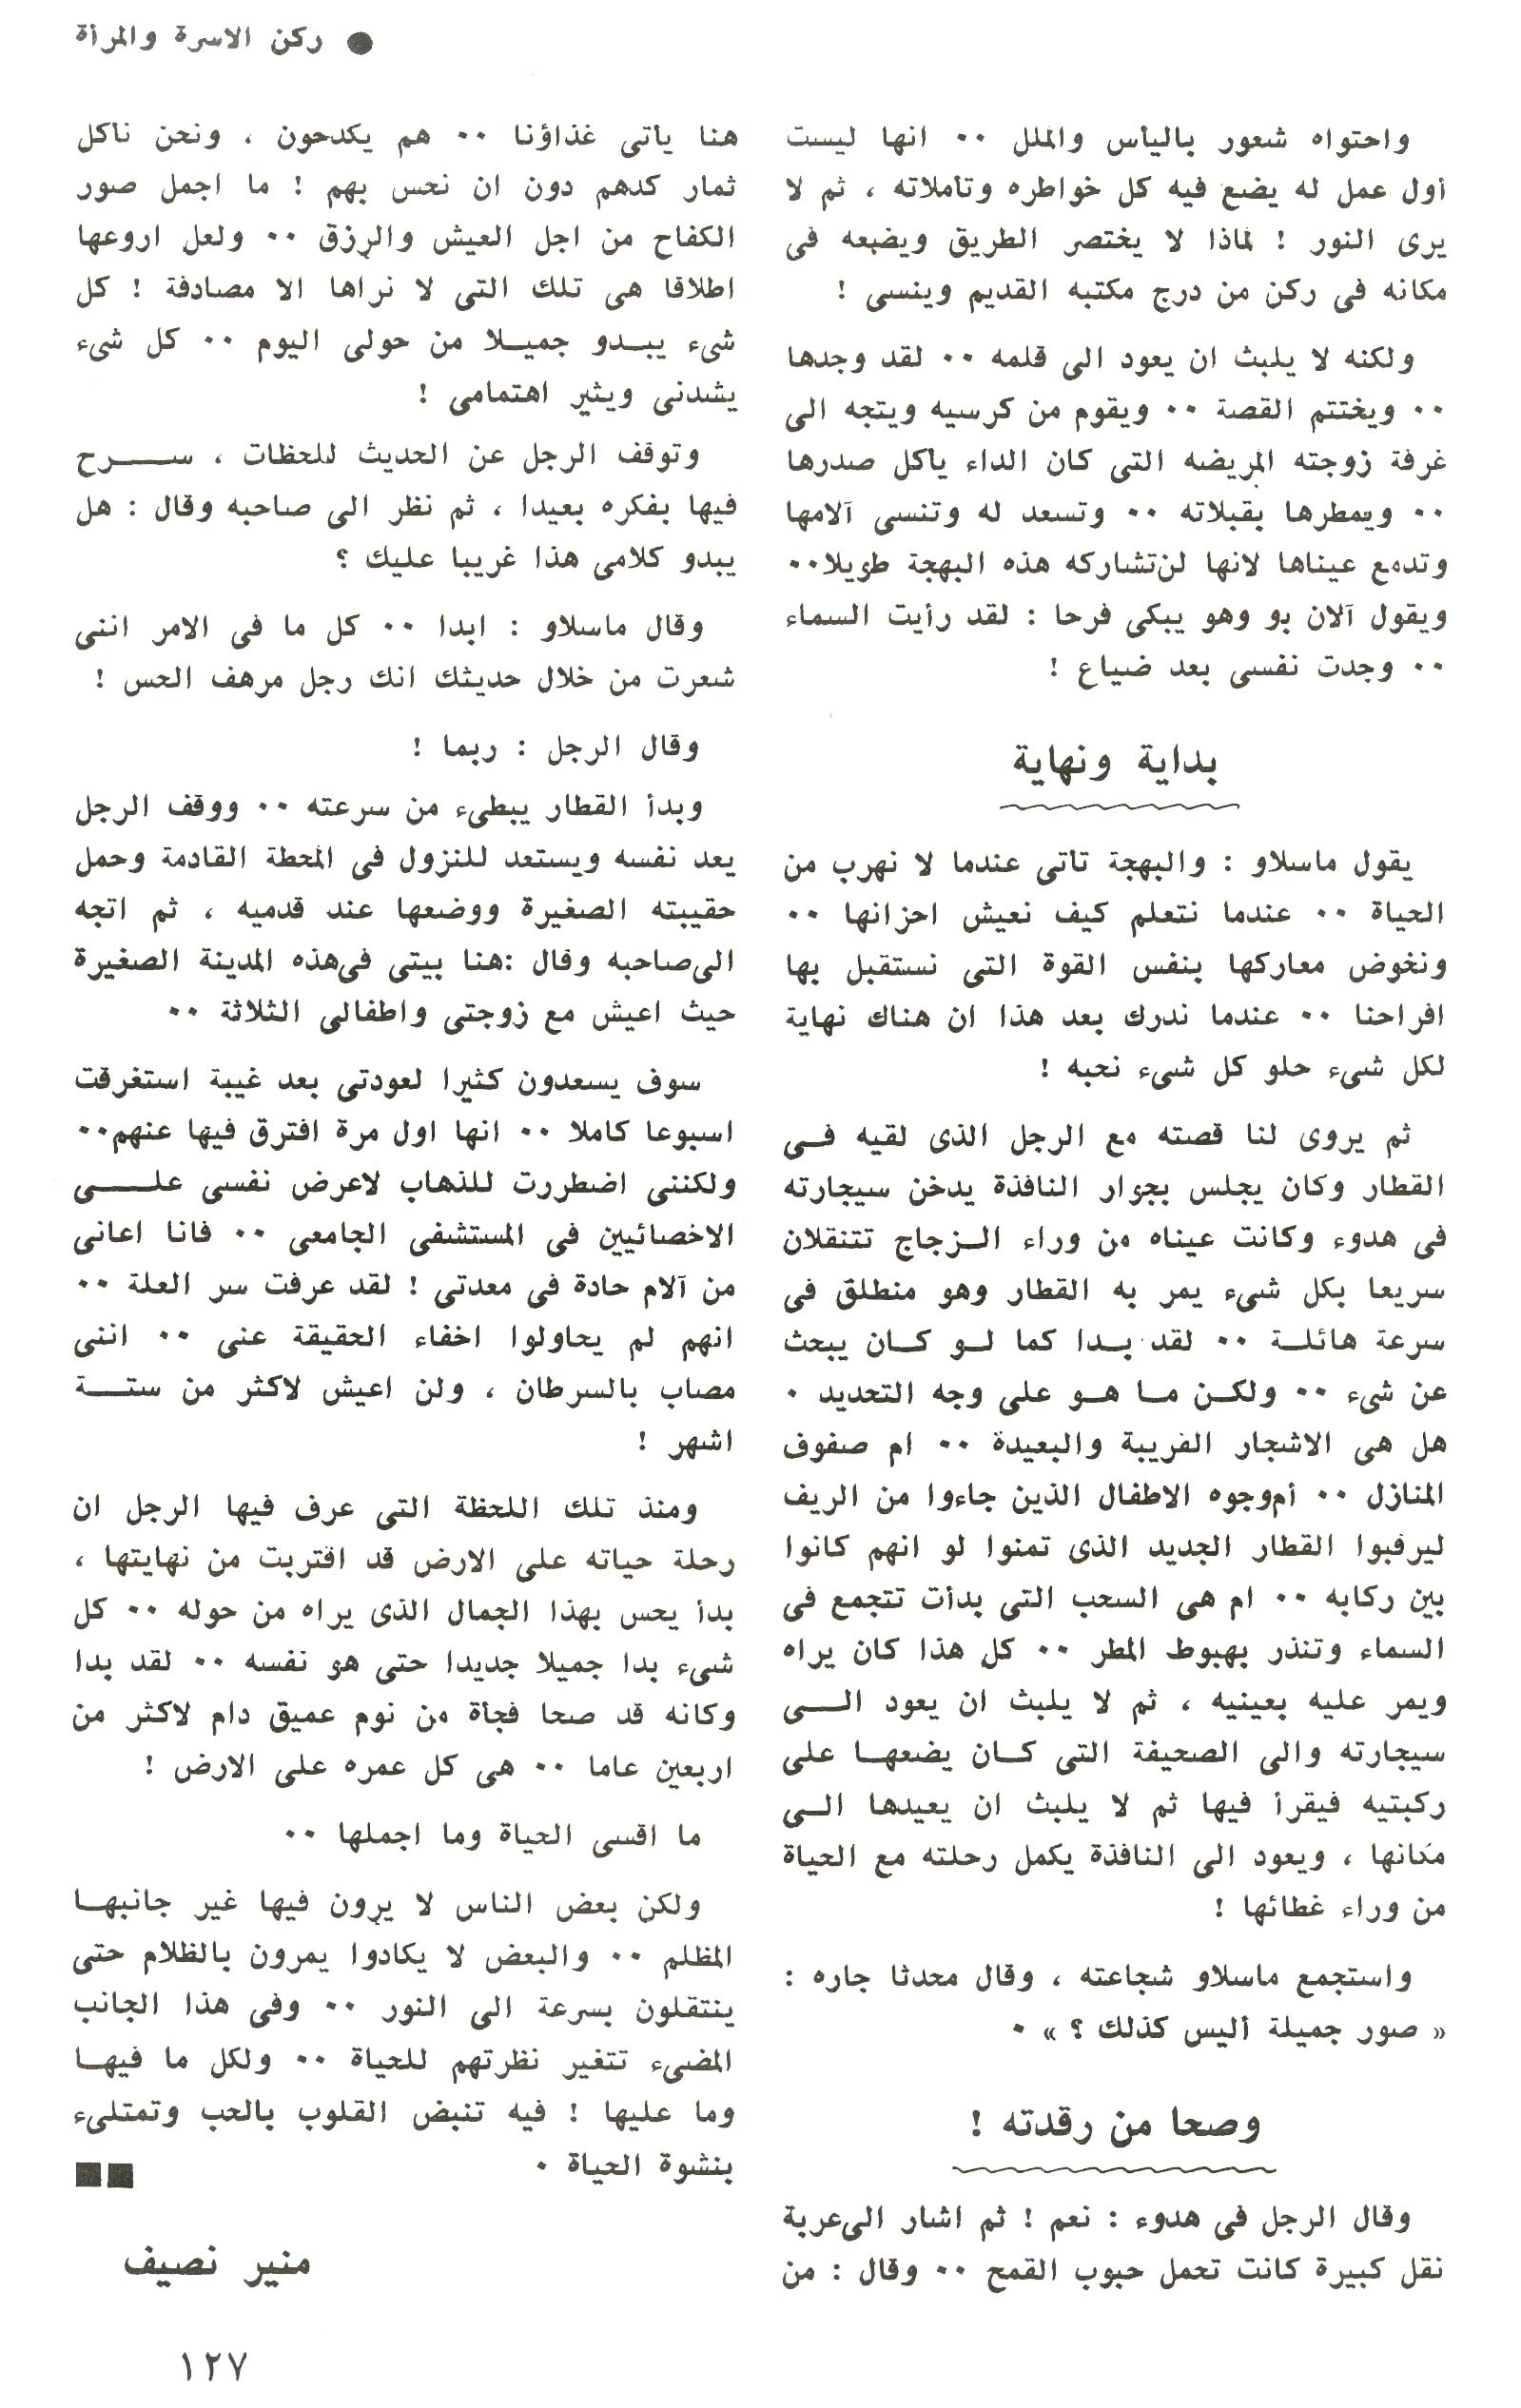 ● ركن الاسرة والمرأة
واحتواه شعور باليأس والملل ٠٠ انها ليست
أول عمل له يضع فيه كل خواطره وتأملاته ، ثم لا
يرى النور ! لماذا لا يختصر الطريق ويضعه فى
مكانه فى ركن من درج مكتبه القديم وينسى !
ولكنه لا يلبث ان يعود الى قلمه ٠٠ لقد وجدها
٠٠ ويختتم القصة ٠٠ ويقوم من كرسيه ويتجه الى
غرفة زوجته المريضه التى كان الداء يأكل صدرها
٠٠ ويمطرها بقبلاته ٠٠ وتسعد له وتنسى آلامها
وتدمع عيناها لانها لن تشاركه هذه البهجة طويلا٠٠
ويقول آلان بو وهو يبكى فرحا : لقد رأيت السماء
٠٠ وجدت نفسى بعد ضياع !
بداية ونهاية
يقول ماسلاو : والبهجة تأتى عندما لا نهرب من
الحياة ٠٠ عندما نتعلم كيف نعيش احزانها ٠٠
ونخوض معاركها بنفس القوة التى نستقبل بها
افراحنا ٠٠ عندما ندرك بعد هذا ان هناك نهاية
لكل شىء حلو كل شىء نحبه !
ثم يروى لنا قصته مع الرجل الذى لقيه فى
القطار وكان يجلس بجوار النافذة يدخن سيجارته
فى هدوء وكانت عيناه من وراء الزجاج تتنقلان
سريعا بكل شىء يمر به القطار وهو منطلق فى
سرعة هائلة ٠٠ لقد بدا كما لو كان يبحث
عن شىء ٠٠ ولكن ما هو على وجه التحديد ٠
هل هى الاشجار القريبة والبعيدة ٠٠ ام صفوف
المنازل ٠٠ أم وجوه الاطفال الذين جاءوا من الريف
ليرقبوا القطار الجديد الذى تمنوا لو انهم كانوا
بين ركابه ٠٠ ام هى السحب التى بدأت تتجمع فى
السماء وتنذر بهبوط المطر ٠٠ كل هذا كان يراه
ويمر عليه بعينيه ، ثم لا يلبث ان يعود الى
سيجارته والى الصحيفة التى كان يضعها على
ركبتيه فيقرأ فيها ثم لا يلبث ان يعيدها الى
مكانها ، ويعود الى النافذة يكمل رحلته مع الحياة
من وراء غطائها !
واستجمع ماسلاو شجاعته ، وقال محدثا جاره :
« صور جميلة أليس كذلك ؟ » ٠
وصحا من رقدته !
وقال الرجل فى هدوء : نعم ! ثم اشار الى عربة
نقل كبيرة كانت تحمل حبوب القمح ٠٠ وقال : من
هنا يأتى غذاؤنا ٠٠ هم يكدحون ، ونحن نأكل
ثمار كدهم دون ان نحس بهم ! ما اجمل صور
الكفاح من اجل العيش والرزق ٠٠ ولعل اروعها
اطلاقا هى تلك التى لا نراها الا مصادفة ! كل
شىء يبدو جميلا من حولى اليوم ٠٠ كل شىء
يشدنى ويثير اهتمامى !
وتوقف الرجل عن الحديث للحظات ، سرح
فيها بفكره بعيدا ، ثم نظر الى صاحبه وقال : هل
يبدو كلامى هذا غريبا عليك ؟
وقال ماسلاو : ابدا ٠٠ كل ما فى الامر اننى
شعرت من خلال حديثك انك رجل مرهف الحس !
وقال الرجل : ربما !
وبدأ القطار يبطىء من سرعته ٠٠ ووقف الرجل
يعد نفسه ويستعد للنزول فى المحطة القادمة وحمل
حقيبته الصغيرة ووضعها عند قدميه ، ثم اتجه
الى صاحبه وقال :هنا بيتى فى هذه المدينة الصغيرة
حيث اعيش مع زوجتى واطفالى الثلاثة ٠٠
سوف يسعدون كثيرا لعودتى بعد غيبة استغرقت
اسبوعا كاملا ٠٠ انها اول مرة افترق فيها عنهم٠٠
ولكننى اضطررت للذهاب لاعرض نفسى على
الاخصائيين فى المستشفى الجامعى ٠٠ فانا اعانى
من آلام حادة فى معدتى ! لقد عرفت سر العلة ٠٠
انهم لم يحاولوا اخفاء الحقيقة عنى ٠٠ اننى
مصاب بالسرطان ، ولن اعيش لاكثر من ستة
اشهر !
ومنذ تلك اللحظة التى عرف فيها الرجل ان
رحلة حياته على الارض قد اقتربت من نهايتها ،
بدأ يحس بهذا الجمال الذى يراه من حوله ٠٠ كل
شىء بدا جميلا جديدا حتى هو نفسه ٠٠ لقد بدا
وكأنه قد صحا فجأة من نوم عميق دام لاكثر من
اربعين عاما ٠٠ هى كل عمره على الارض !
ما اقسى الحياة وما اجملها ٠٠
ولكن بعض الناس لا يرون فيها غير جانبها
المظلم ٠٠ والبعض لا يكادوا يمرون بالظلام حتى
ينتقلون بسرعة الى النور ٠٠ وفى هذا الجانب
المضىء تتغير نظرتهم للحياة ٠٠ ولكل ما فيها
وما عليها ! فيه تنبض القلوب بالحب وتمتلىء
بنشوة الحياة ٠
منير نصيف
١٢٧